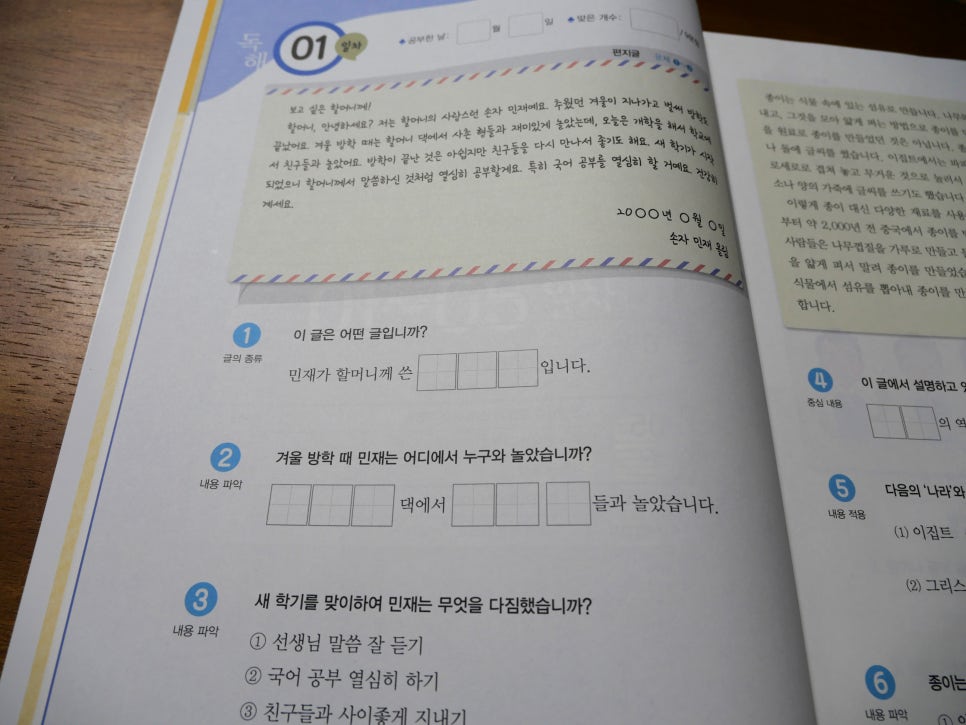 독해
01 일차
♠공부한 날: 월 일 ♠맞은 개수:
편지글
보고 싶은 할머니께!
할머니, 안녕하세요? 저는 할머니의 사랑스런 손자 민재예요. 추웠던 겨울이 지나가고 벌써 방학도
끝났어요. 겨울 방학 때는 할머니 댁에서 사촌 형들과 재미있게 놀았는데, 오늘은 개학을 해서 학교에
서 친구들과 놀았어요. 방학이 끝난 것은 아쉽지만 친구들을 다시 만나서 좋기도 해요. 새 학기가 시작
되었으니 할머니께서 말씀하신 것처럼 열심히 공부할게요. 특히 국어 공부를 열심히 할 거예요. 건강히
계세요.
20○○년 ○월 ○일
손자 민재 올림
1 이 글은 어떤 글입니까?
글의 종류
민재가 할머니께 쓴 입니다.
2 겨울 방학 때 민재는 어디에서 누구와 놀았습니까?
내용 파악
댁에서 들과 놀았습니다.
3 새 학기를 맞이하여 민재는 무엇을 다짐했습니까?
내용 파악
① 선생님 말씀 잘 듣기
② 국어 공부 열심히 하기
③ 친구들과 사이좋게 지내기
종이는 식물 속에 있는 섬유로 만듭니다.
내고, 그것을 모아 얇게 펴는 방법으로 종이를
을 원료로 종이를 만들었던 것은 아닙니다.
나 돌에 글씨를 썼습니다. 이집트에서는
로세로로 겹쳐 놓고 무거운 것으로 눌러서
소나 양의 가죽에 글씨를 쓰기도 했습니다
이렇게 종이 대신 다양한 재료를
부터 약 2,000년 전 중국에서 종이를
사람들은 나무껍질을 가루로 만들고
을 얇게 펴서 말려 종이를 만들었습
식물에서 섬유를 뽑아내 종이를 만
합니다.
4 이 글에서 설명하고
중심 내용
의 역
5 다음의 '나라'와
내용 적용
(1) 이집트
(2) 그리스
6 종이는
내용 파악